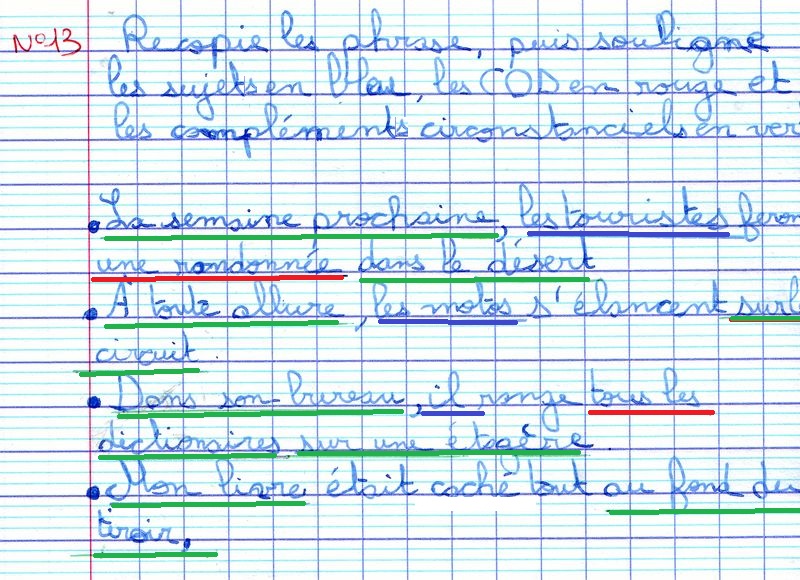 N°13 Recopie les phrase, puis souligne
les sujets en bleu, les COD en rouge et
les compléments circonstanciels en ver
• La semaine prochaine, les touristes feron
une randonnée dans le désert
• À toute allure, les motos s'élancent sur l
circuit.
• Dans son bureau, il range tous les
dictionaires sur une étagère.
• Mon livre était caché tout au fond du
tiroir.